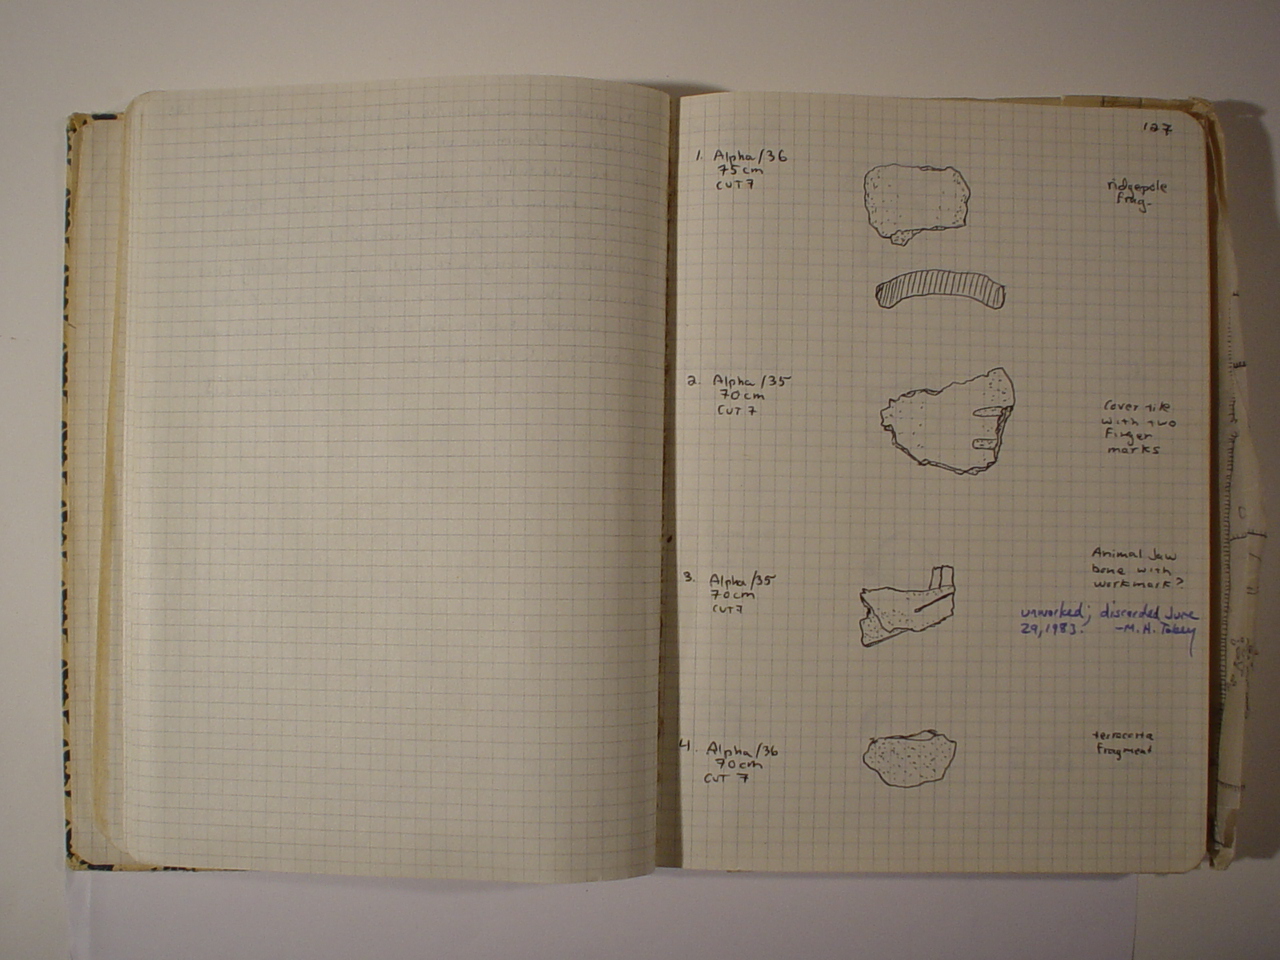 127
1. Alpha/36
75cm
CUT 7
ridgepole
frag.
2. Alpha/35
70cm
CUT 7
Cover tile
with two
Finger
marks
3. Alpha/35
70cm
CUT 7
Animal Jaw
bone with
workmark?
unworked; discarded June
29, 1983. -M. H. Tobey
4. Alpha/36
70cm
CUT 7
terracotta
Fragment